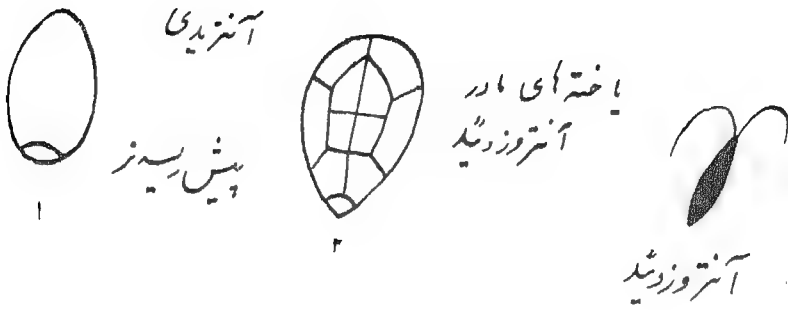 آنتریدی
پیش ریسه نر
۱
یاخته‌های مادر
آنتروزوئید
۲
آنتروزوئید